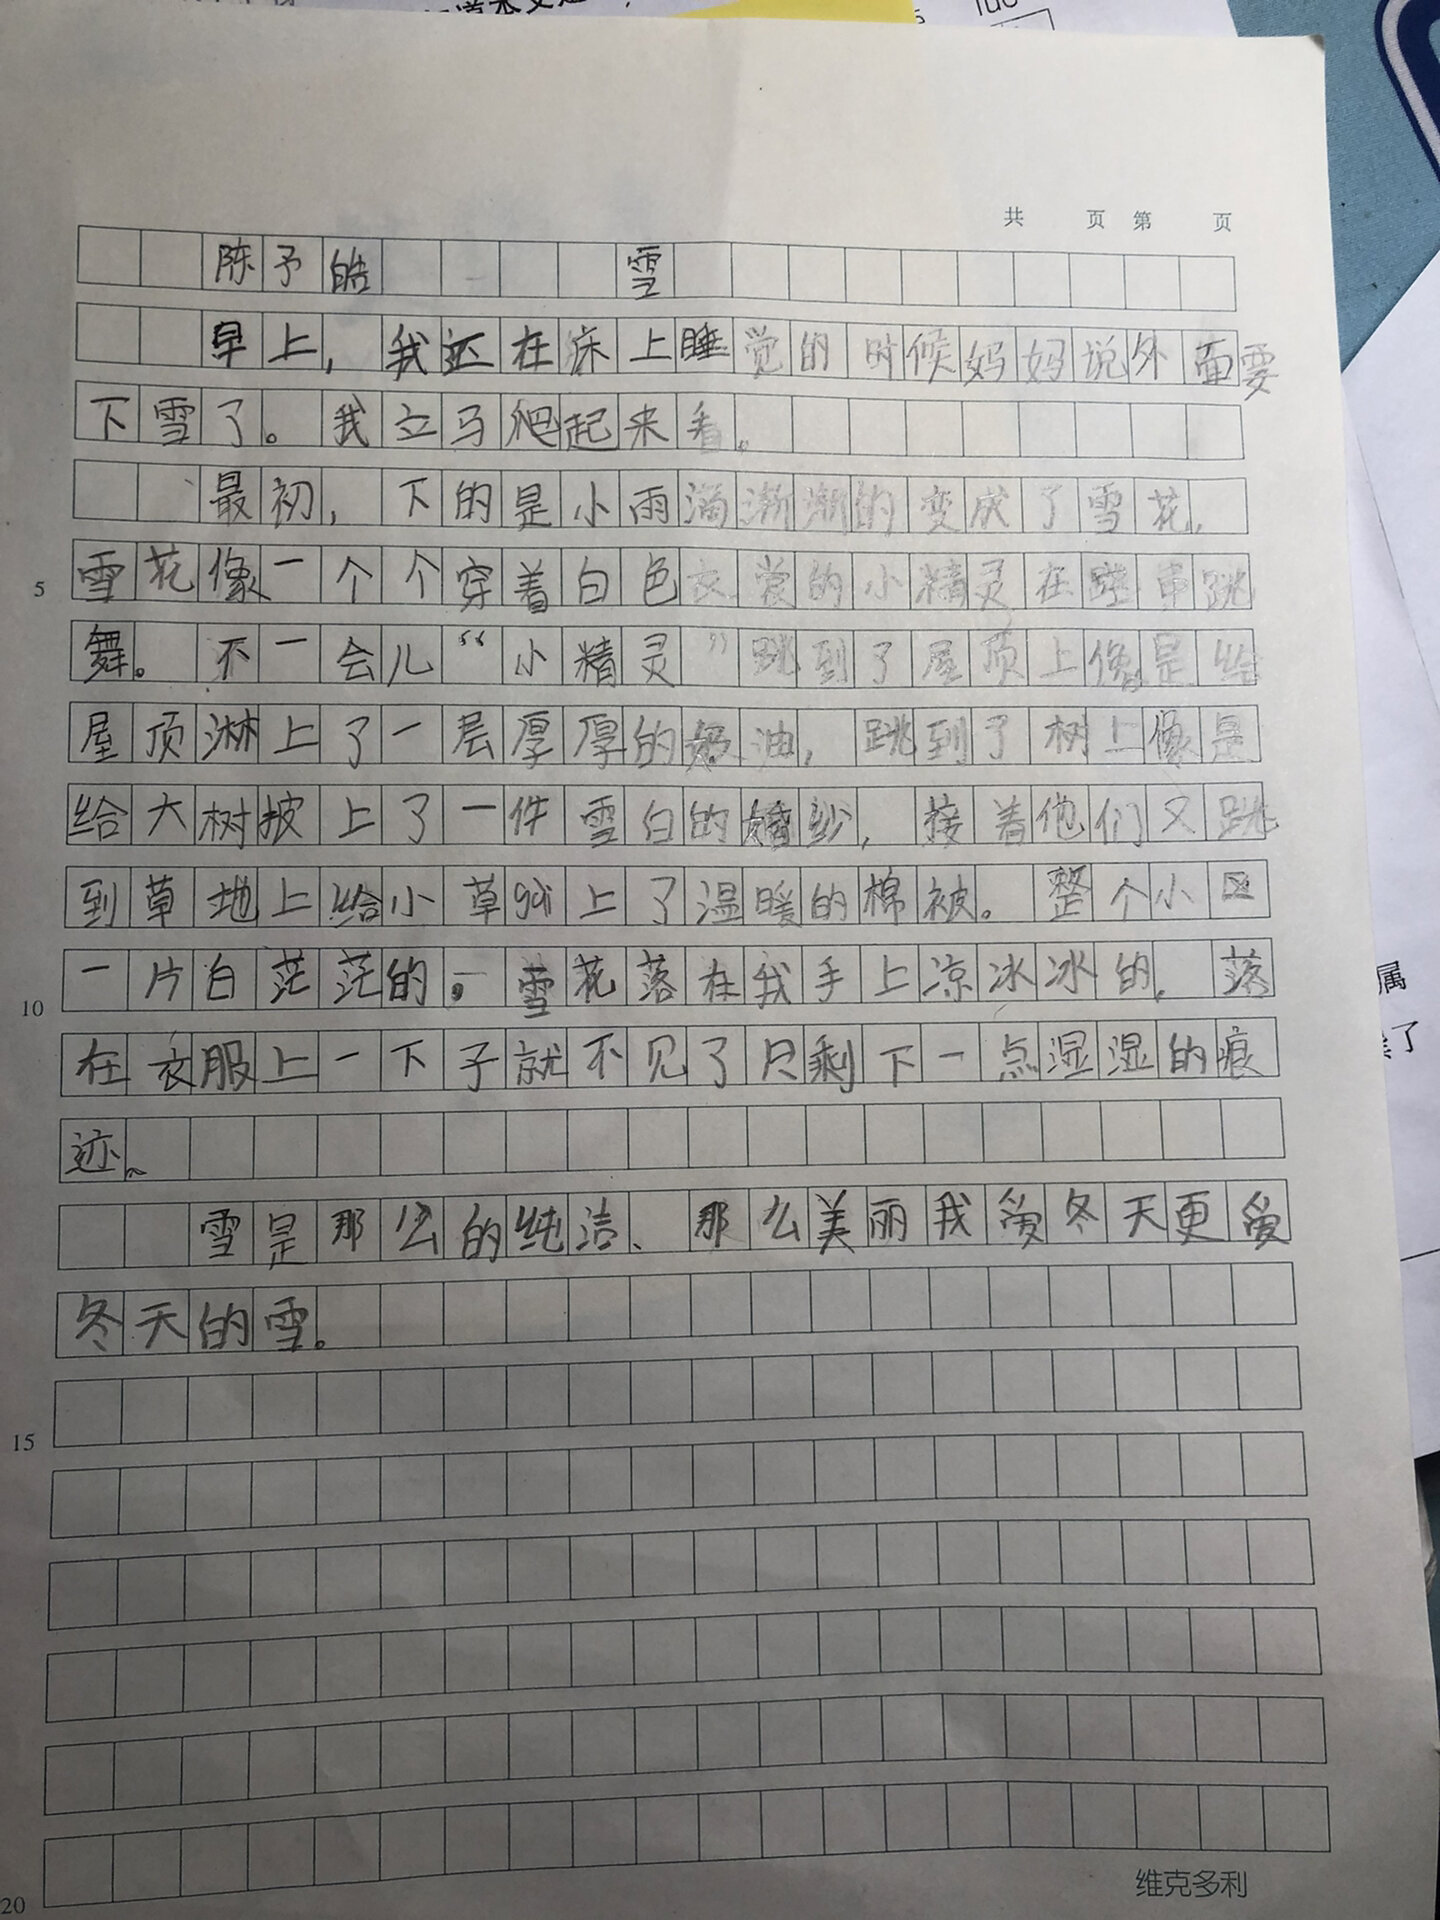 luo
共 页 第 页
陈予皓 雪
早上，我还在床上睡觉的时候妈妈说外面要
下雪了。我立马爬起来看。
最初，下的是小雨滴渐渐的变成了雪花，
5
雪花像一个个穿着白色衣裳的小精灵在跳跳
舞。不一会儿“小精灵”跳到了屋顶上像是给
屋顶淋上了一层厚厚的奶油，跳到了树上像是
给大树披上了一件雪白的婚纱，接着他们又跳
到草地上给小草gai上了温暖的棉被。整个小区
一片白茫茫的。雪花落在我手上凉冰冰的，落
10
在衣服上一下子就不见了只剩下一点湿湿的痕
迹。
雪是那么的纯洁、那么美丽我爱冬天更爱
冬天的雪。
15
20
维克多利
属
了